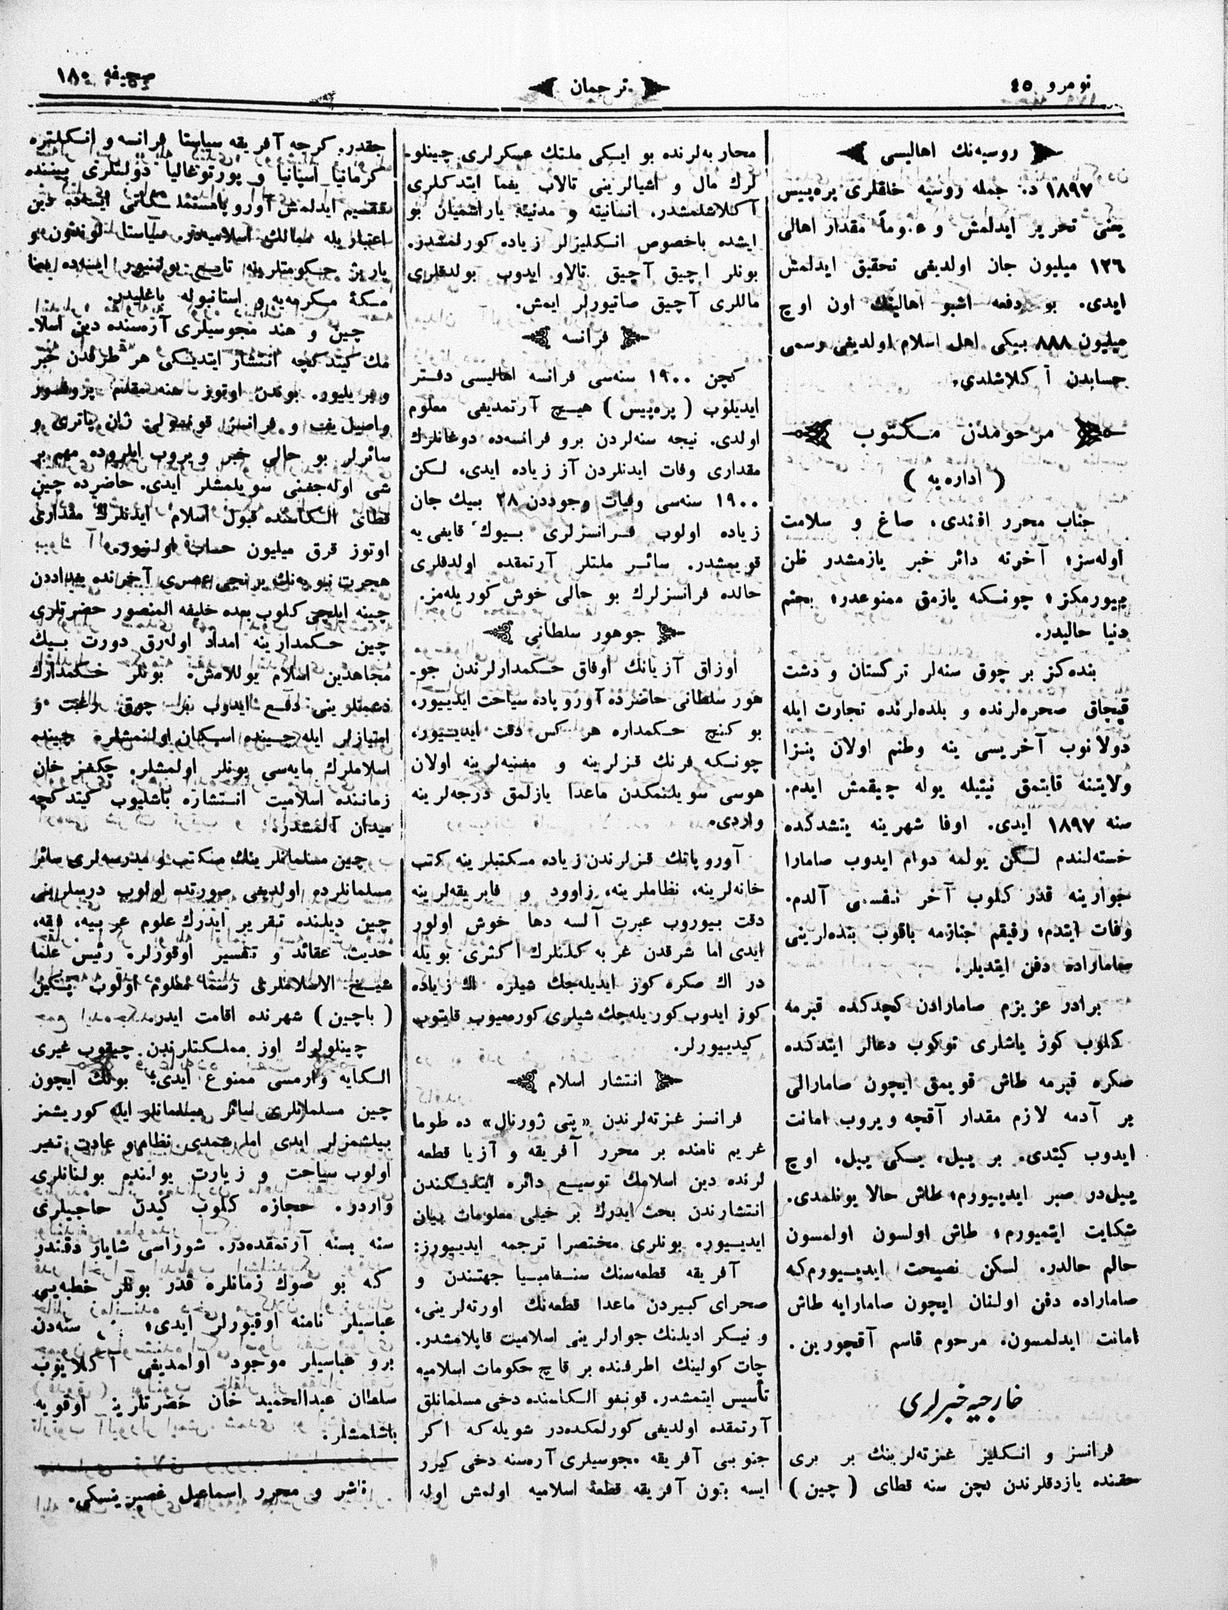 نومرو ٤٥
ترجمان
صحیفه ١٨٠
روسیه‌نك اهالیسی
١٨٩٧ ده جمله روسیه خلقلری پره‌پیس
یعنی تحریر ایدلمش و عموماً مقدار اهالی
١٢٦ میلیون جان اولدیغی تحقیق ایدلمش
ایدی. بو دفعه اشبو اهالینك اون اوچ
میلیون ٨٨٨ بیكی اهل اسلام اولدیغی رسمی
حسابدن آكلاشلدی.
مرحومدن مكتوب
( اداره‌یه )
جناب محرر افندی، صاغ و سلامت
اوله‌سز؛ آخرته دائر خبر یازمشدر ظن
بیورمكز؛ چونكه یازمق ممنوعدر؛ بحثم
دنیا حالیدر.
بنده‌كز بر چوق سنه‌لر تركستان و دشت
قپچاق صحره‌لرنده و بلده‌لرنده تجارت ایله
دولانوب آخریسی ینه وطنم اولان پنزا
ولایتنه قایتمق نیتیله یوله چیقمش ایدم.
سنه ١٨٩٧ ایدی. اوفا شهرینه یتشدكده
خسته‌لندم لكن یولمه دوام ایدوب صامارا
جوارینه قدر كلوب آخر نفسمی آلدم.
وفات ایتدم؛ رفیقم جنازمه باقوب بنده‌لرینی
صاماراده دفن ایتدیلر.
برادر عزیزم صامارادن كچدكده قبرمه
كلوب كوز یاشلری توكوب دعالر ایتدكده
صكره قبرمه طاش قویمق ایچون صامارالی
بر آدمه لازم مقدار آقچه ویروب امانت
ایدوب كیتدی. بر ییل، یكی ییل، اوچ
ییلدر صبر ایدییورم؛ طاش حالا یونلمدی.
شكایت ایتمیورم؛ طاش اولسون اولمسون
حالم حالدر. لكن نصیحت ایدییورم‌كه
صاماراده دفن اولنان ایچون صامارایه طاش
امانت ایدلمسون. مرحوم قاسم آقچورین.
خارجیه خبرلری
فرانسز و انكلیز غزته‌لرینك بر بری
حقنده یازدقلرندن كچن سنه قطای ( چین )
محاربه‌لرنده بو ایكی ملتك عسكرلری چینلو-
لرك مال و اشیالرینی تالاب یغما ایتدكلری
آكلاشلمشدر. انسانیته و مدنیته یاراشمیان بو
ایشده باخصوص انكلیزلر زیاده كورلمشدر.
بونلر اچیق آچیق تالاو ایدوب بولدقلری
ماللری آچیق صاتیورلر ایمش.
فرانسه
كچن ١٩٠٠ سنه‌سی فرانسه اهالیسی دفتر
ایدیلوب ( پره‌پیس ) هیچ آرتمدیغی معلوم
اولدی. نیجه سنه‌لردن برو فرانسه‌ده دوغانلرك
مقداری وفات ایدنلردن آز زیاده ایدی، لكن
١٩٠٠ سنه‌سی وفیات وجوددن ٢٨ بیك جان
زیاده اولوب فرانسزلری بیوك قایغی‌یه
قویمشدر. سائر ملتلر آرتمقده اولدقلری
حالده فرانسزلرك بو حالی خوش كوریله‌مز.
جوهور سلطانی
اوزاق آزیانك اوفاق حكمدارلرندن جو-
هور سلطانی حاضرده آوروپاده سیاحت ایدییور.
بو كنج حكمداره هر كس دقت ایدییور،
چونكه فرنك قزلرینه و مغنیه‌لرینه اولان
هوسی سویلنمكدن ماعدا یازلمق درجه‌لرینه
واردی.
آوروپانك قزلرندن زیاده مكتبلرینه كتب
خانه‌لرینه، نظاملرینه، زاوود و فابریقه‌لرینه
دقت بیوروب عبرت آلسه دها خوش اولور
ایدی اما شرقدن غربه كلنلرك اكثری بویله
در اك صكره كوز ایدیله‌جك شیلره اك زیاده
كوز ایدوب كوریله‌جك شیلری كورمیوب قایتوب
كیدییورلر.
انتشار اسلام
فرانسز غزته‌لرندن «پتی ژورنال» ده طوما
غریم نامنده بر محرر آفریقه و آزیا قطعه
لرنده دین اسلامك توسیع دائره ایتدیكندن
انتشارندن بحث ایدرك بر خیلی معلومات بیان
ایدییور. بونلری مختصرا ترجمه ایدییورز:
آفریقه قطعه‌سنك سنغامبیا جهتندن و
صحرای كبیردن ماعدا قطعه‌نك اورته‌لرینی،
و نیكر ادیلنك جوارلرینی اسلامیت قاپلامشدر.
چات كولینك اطرفنده بر قاچ حكومات اسلامیه
تأسیس ایتمشدر. قونغو الكاسنده دخی مسلمانلق
آرتمقده اولدیغی كورلمكده‌در شویله‌كه اكر
جنوبی آفریقه مجوسیلری آره‌سنه دخی كیرر
ایسه بتون آفریقه قطعهٔ اسلامیه اولمش اوله
جقدر. كرچه آفریقه سیاستا فرانسه و انكلتره
كرمانیا آسپانیا و پورتوغالیا دولتلری بیننده
تقسیم ایدلمش آوروپا مستملكاتی ایسه‌ده دین
اعتباریله ممالك اسلامیه‌در. سیاستا لوندون و
پاریز حكومتلرینه تابع بولنیور ایسه‌ده دینا
مكهٔ مكرمه‌یه و استانبوله باغلیدر.
چین و هند مجوسیلری آره‌سنده دین اسلا-
مك كیتدكچه انتشار ایتدیكی هر طرفدن خبر
ویریلیور. بوندن اوتوز سنه مقدم پروفسور
واصیل یف و فرانسز قونسولی ژان پاتری و
سائرلر بو حالی خبر ویروب ایلروده مهم بر
شی اوله‌جغنی سویلمشلر ایدی. حاضرده چین
قطای الكاسنده قبول اسلام ایدنلرك مقداری
اوتوز قرق میلیون حساب اولنیور.
هجرت نبویه‌نك برنجی عصری آخرنده بغداددن
چینه ایلچی كلوب بعده خلیفه المنصور حضرتلری
چین حكمدارینه امداد اوله‌رق دورت بیك
مجاهدین اسلام یوللامش. بونلر حكمدارك
دشمنلرینی دفع ایدوب بر چوق رغبت و
امتیازلر ایله چینده اسكان اولنمشلر. چینده
اسلاملرك مایه‌سی بونلر اولمشلر. چنكز خان
زماننده اسلامیت انتشاره باشلیوب كیتدكچه
میدان آلمشدر.
چین مسلمانلرینك مكتب و مدرسه‌لری سائر
مسلمانلرده اولدیغی صورتده اولوب درسلرینی
چین دیلنده تقریر ایدرك علوم عربیه، فقه،
حدیث، عقائد و تفسیر اوقورلر. رئیس علما
شیخ الاسلاملری رسما معلوم اولوب پكین
( باچین ) شهرنده اقامت ایدر.
چینلولرك اوز مملكتلرندن چیقوب غیری
الكایه وارمسی ممنوع ایدی؛ بونك ایچون
چین مسلمانلری سائر مسلمانلر ایله كوریشمز
بیلشمزلر ایدی اما شمدی نظام و عادت تغیر
اولوب سیاحت و زیارت یولندیم بولنانلری
واردر. حجازه كلوب كیدن حاجیلری
سنه بسنه آرتمقده‌در. شوراسی شایان دقتدر
كه بو صوك زمانلره قدر بونلر خطبه‌یی
عباسیلر نامنه اوقیورلر ایدی؛ سنه‌دن
برو عباسیلر موجود اولمدیغی آكلایوب
سلطان عبدالحمید خان حضرتلرینه اوقویه
باشلمشلر.
ناشر و محرر اسماعیل غصپرینسكی.